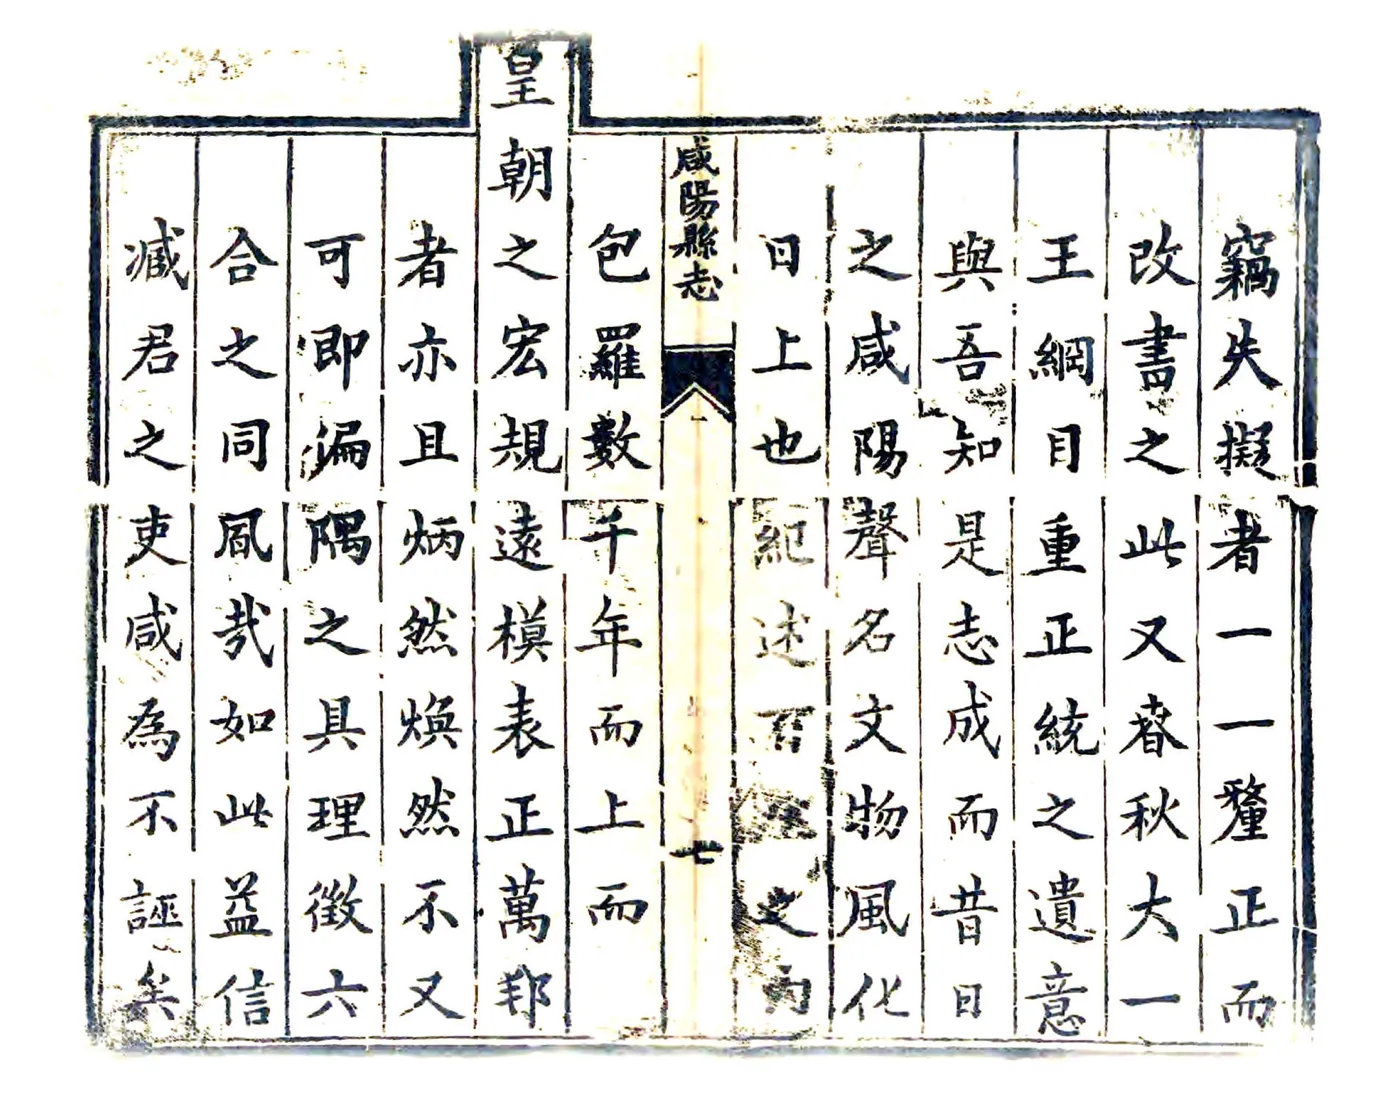 竊失擬者一一釐正而
改書之此又春秋大一
王綱目重正統之遺意
與吾知是志成而昔日
之咸陽聲名文物風化
日上也紀述百之內
咸陽縣志
一
七
包羅數千年而上而
皇朝之宏規遠模表正萬邦
者亦且炳然煥然不又
可即偏隅之具理徵六
合之同風哉如此益信
臧君之吏咸為不誣矣